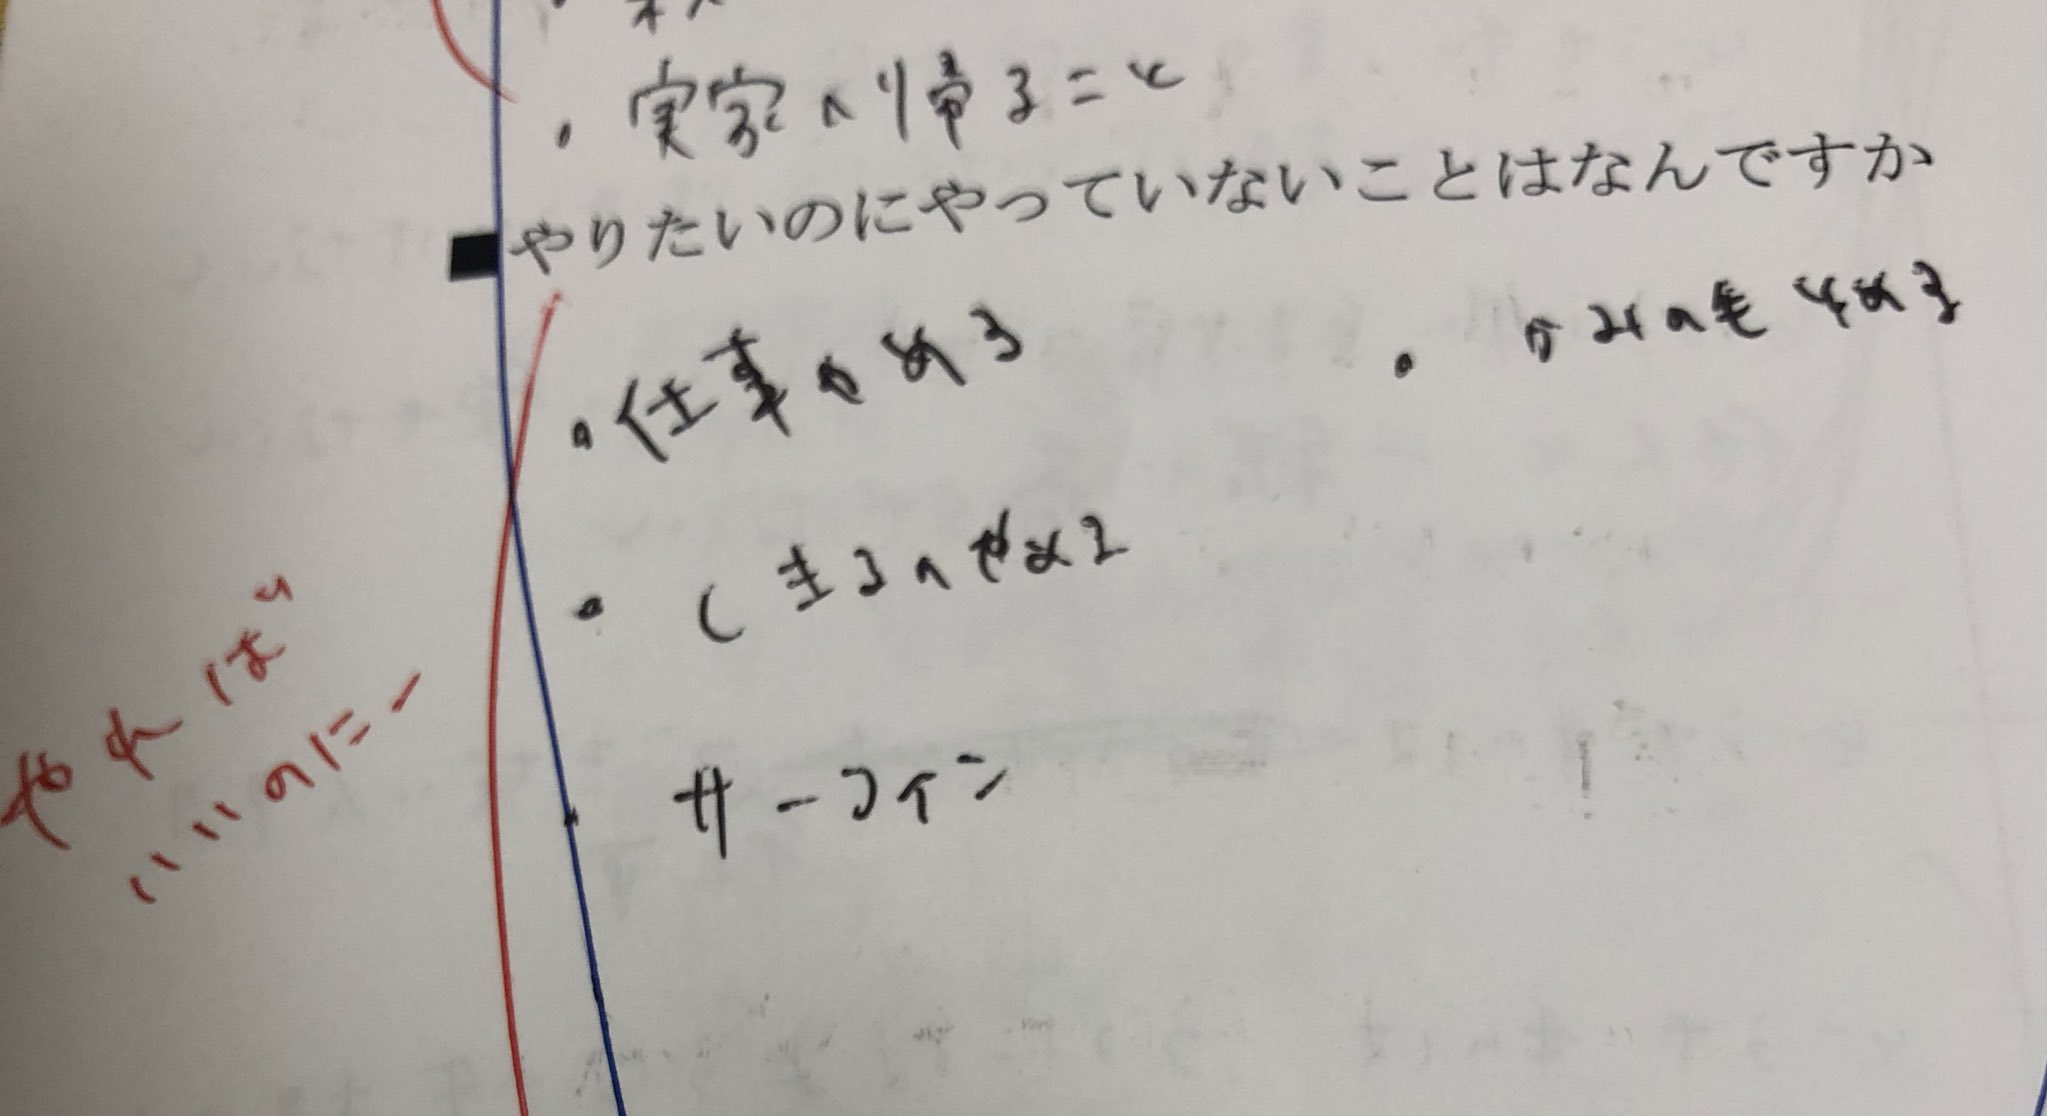 ・実家へ帰ること
やりたいのにやっていないことはなんですか
・仕事やめる
・かみの毛そめる
・生るのやめる
・サーフィン
やればいいのにー